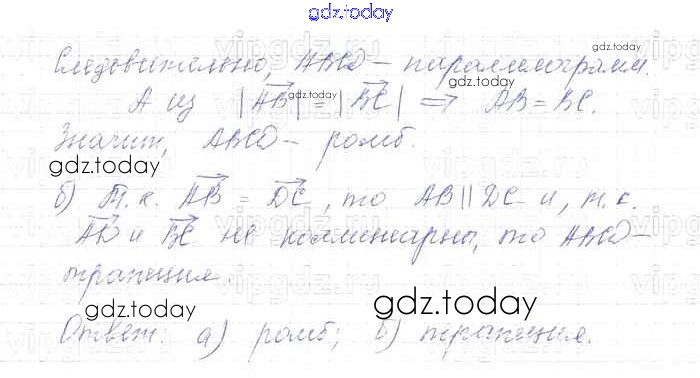 gdz.today
Следовательно, ABCD – параллелограмм.
gdz.today
А из |AB| = |BC| ⇒ AB = BC.
gdz.today
Значит, ABCD – ромб.
gdz.today
б) Т.к. AB = DC, то AB || DC и, т.к.
AD и BC не коллинеарны, то ABCD –
трапеция.
gdz.today
gdz.today
Ответ: а) ромб; б) трапеция.